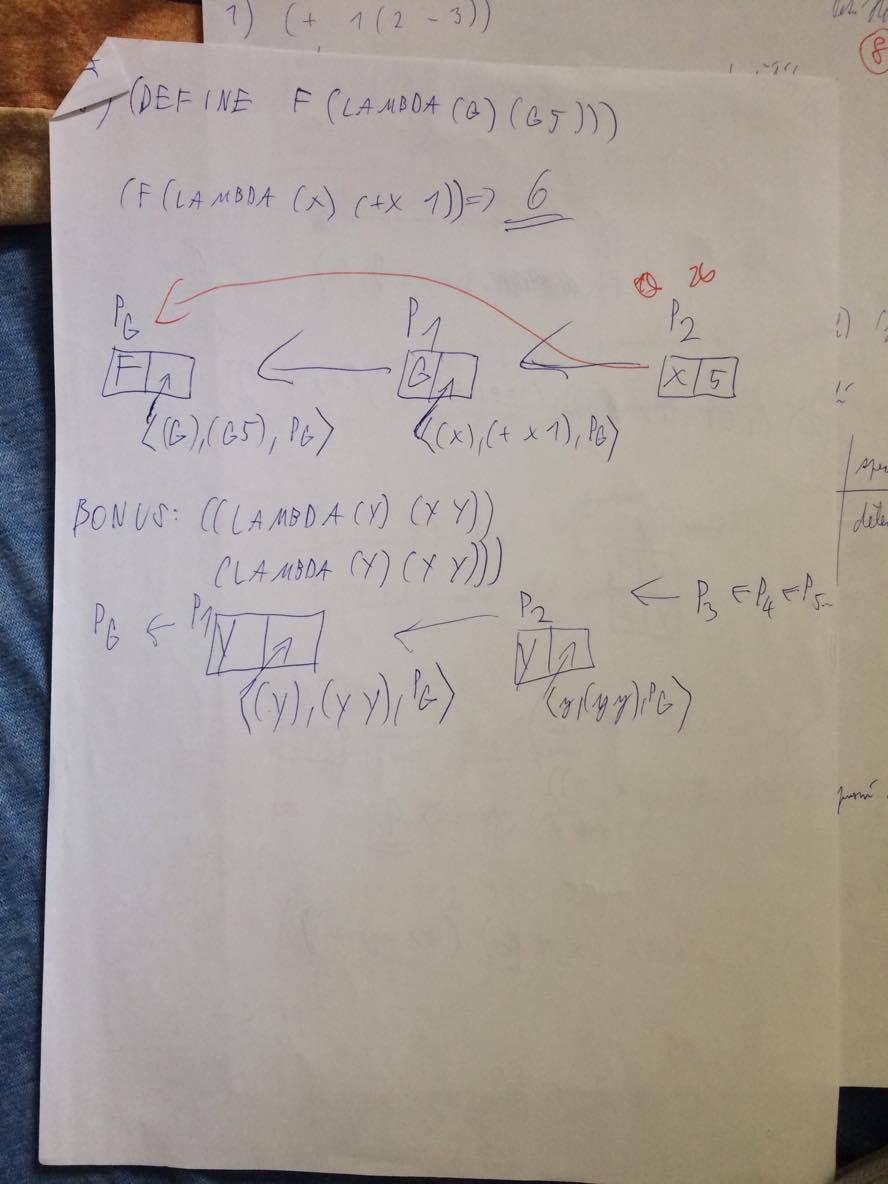 1) (+ 1 (2 - 3))
8
) (DEFINE F (LAMBDA (G) (G 5)))
(F (LAMBDA (X) (+X 1)) => 6
26
PG P1 P2
F G X 5
<(G), (G5), PG> <(x), (+ x 1), PG>
BONUS: ((LAMBDA (Y) (Y Y))
(LAMBDA (Y) (Y Y)))
PG ← P1 ← P2 ← P3 ← P4 ← P5..
Y Y
<(y), (Y Y), PG> <y, (y y), PG>